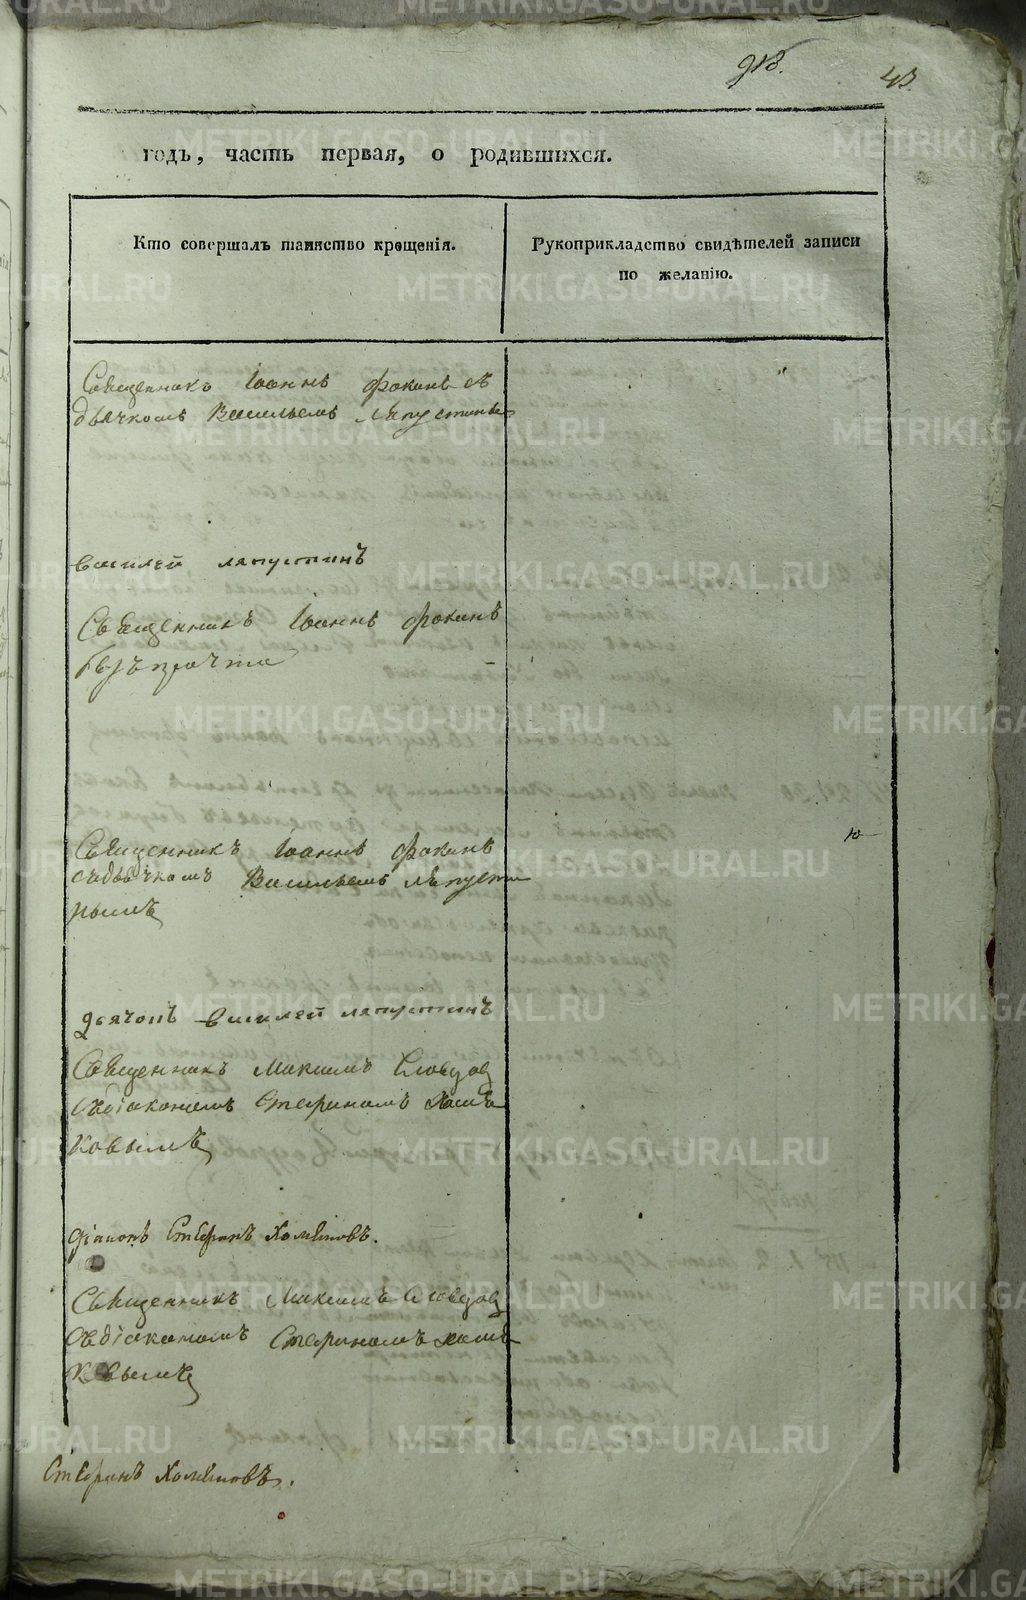 43
годъ, часть первая, о родившихся.
Кто совершалъ таинство крещенія.
Рукоприкладство свидѣтелей записи
по желанію.
Священникъ Іоаннъ Фокинъ съ
дьячкомъ Васильемъ Ляпустинымъ
василей ляпустинъ
Священникъ Іоаннъ Фокинъ
безъ причта
Священникъ Іоаннъ Фокинъ
съ дьячкомъ Васильемъ Ляпусти
нымъ
дьячокъ василей ляпустинъ
Священникъ Максимъ Словцов
съ діакономъ Стефаномъ Хомя
ковымъ
діаконъ Стефанъ Хомяковъ.
Священникъ Максимъ Словцов
съ діакономъ Стефаномъ Хомя
ковымъ
Стефанъ Хомяковъ.
METRIKI.GASO-URAL.RU